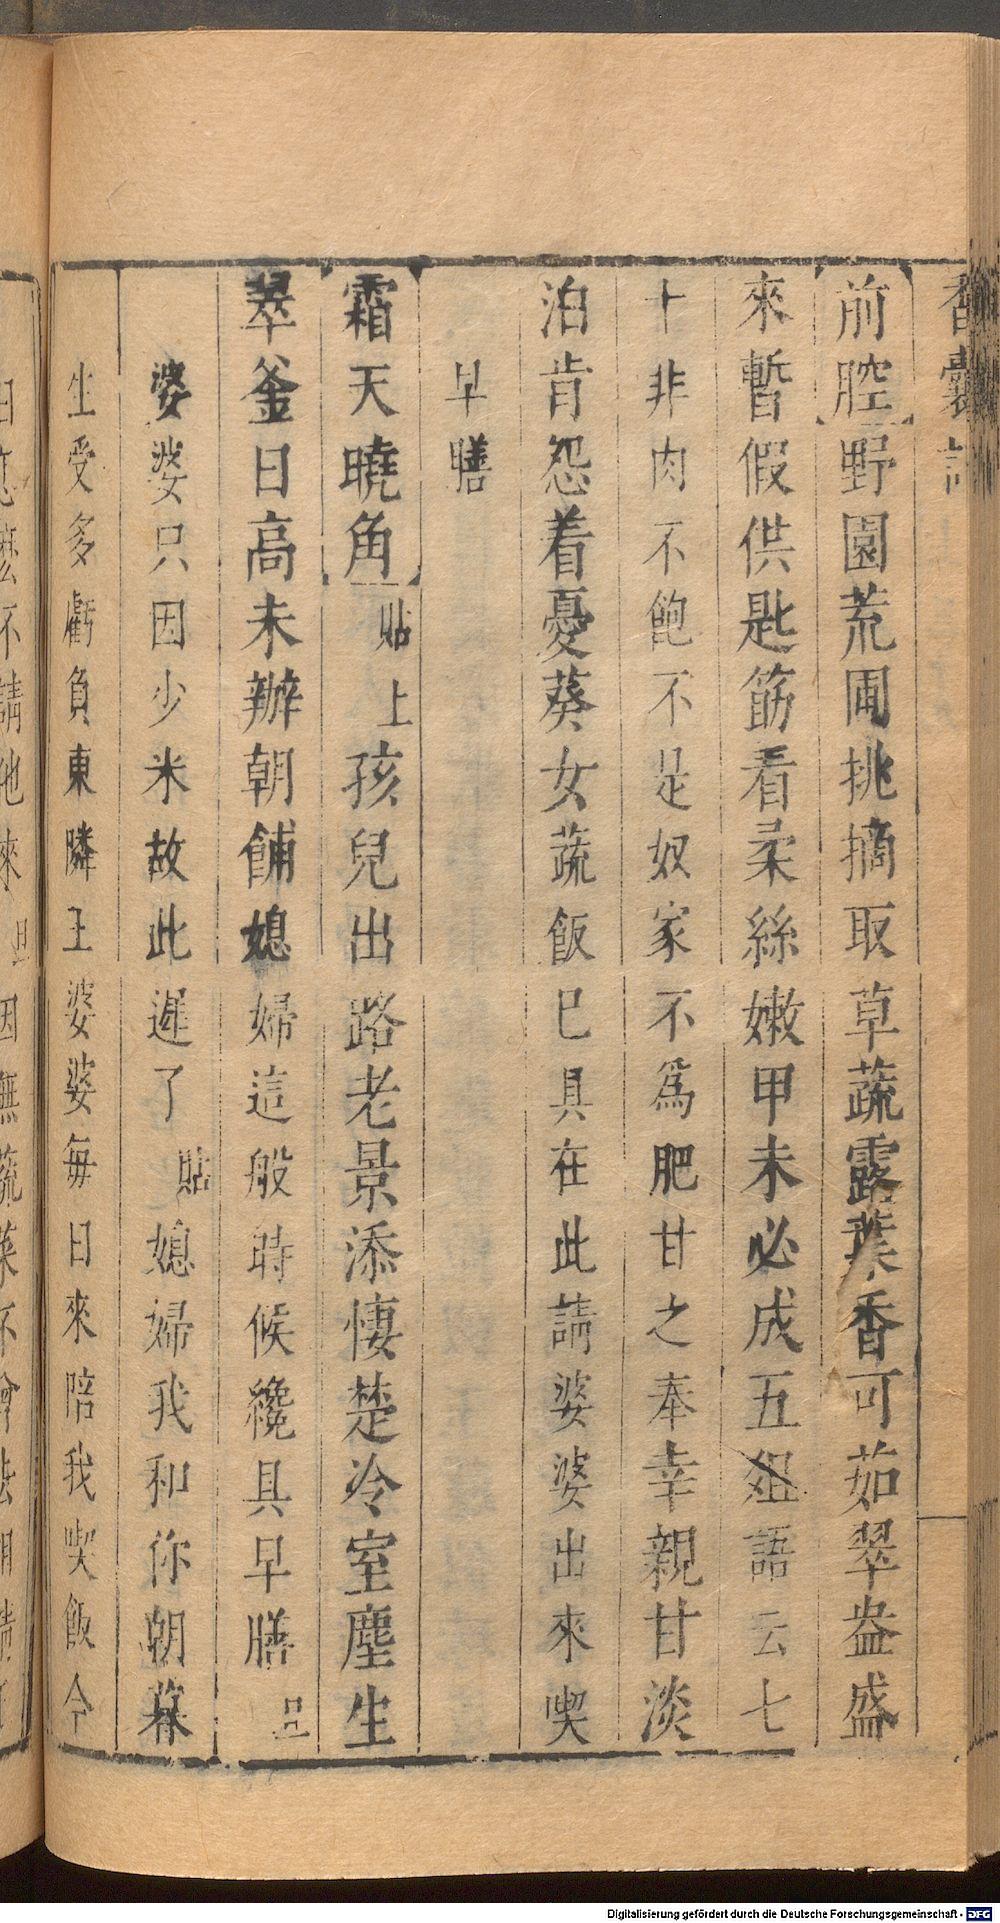 香囊記
前腔野園荒圃挑摘取草蔬露葉香可茹翠盎盛
來暫假供匙筯看柔絲嫩甲未必成五俎語云七
十非肉不飽不是奴家不爲肥甘之奉幸親甘淡
泊肯怨着憂葵女蔬飯已具在此請婆婆出來喫
早膳
霜天曉角貼上孩兒出路老景添悽楚冷室塵生
翠釜日高未辦朝餔媳婦這般時候纔具早膳旦
婆婆只因少米故此遲了貼媳婦我和你朝暮
生受多虧負東隣王婆婆每日來陪我喫飯今
日怎麽不請他來旦因無蔬菜不曾去
Digitalisierung gefördert durch die Deutsche Forschungsgemeinschaft - DFG